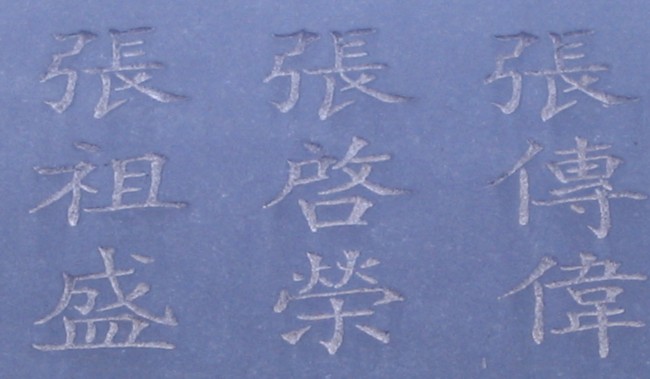 張傳偉
張啓榮
張祖盛